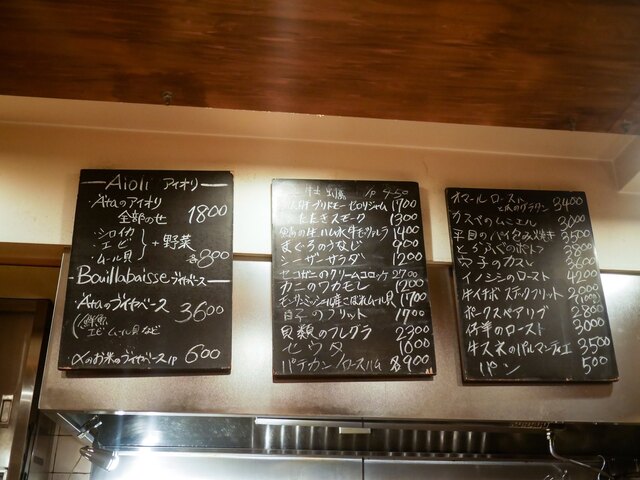 Aioli アイオリ
Ataのアイオリ
全部のせ 1800
・シロイカ
・エビ + 野菜
・ムール貝 各800
Bouillabaisse ブイヤベース
・Ataのブイヤベース 3600
鮮魚
エビ ムール貝 など
のお米のブイヤベース 600
1700
スモーク 1300
1400
まぐろのうなじ 900
シーザーサラダ 1200
セコガニのクリームコロッケ 2700
カニのワカモレ 1200
モンサンミッシェル産こぼれムール貝 1700
白子のフリット 1900
貝類のフレグラ 2300
セウタ 1600
パテカン/ロースハム 各900
オマールロースト
のグラタン 3400
ガスペのムニエル 3000
平目のパイ包み焼き 3500
のポトフ 3800
ウチのカスレ
イノシシのロースト 4200
ステックフリット 2000
ポークスペアリブ 2800
仔羊のロースト 3000
牛スネのパルマンティエ 3500
パン 500